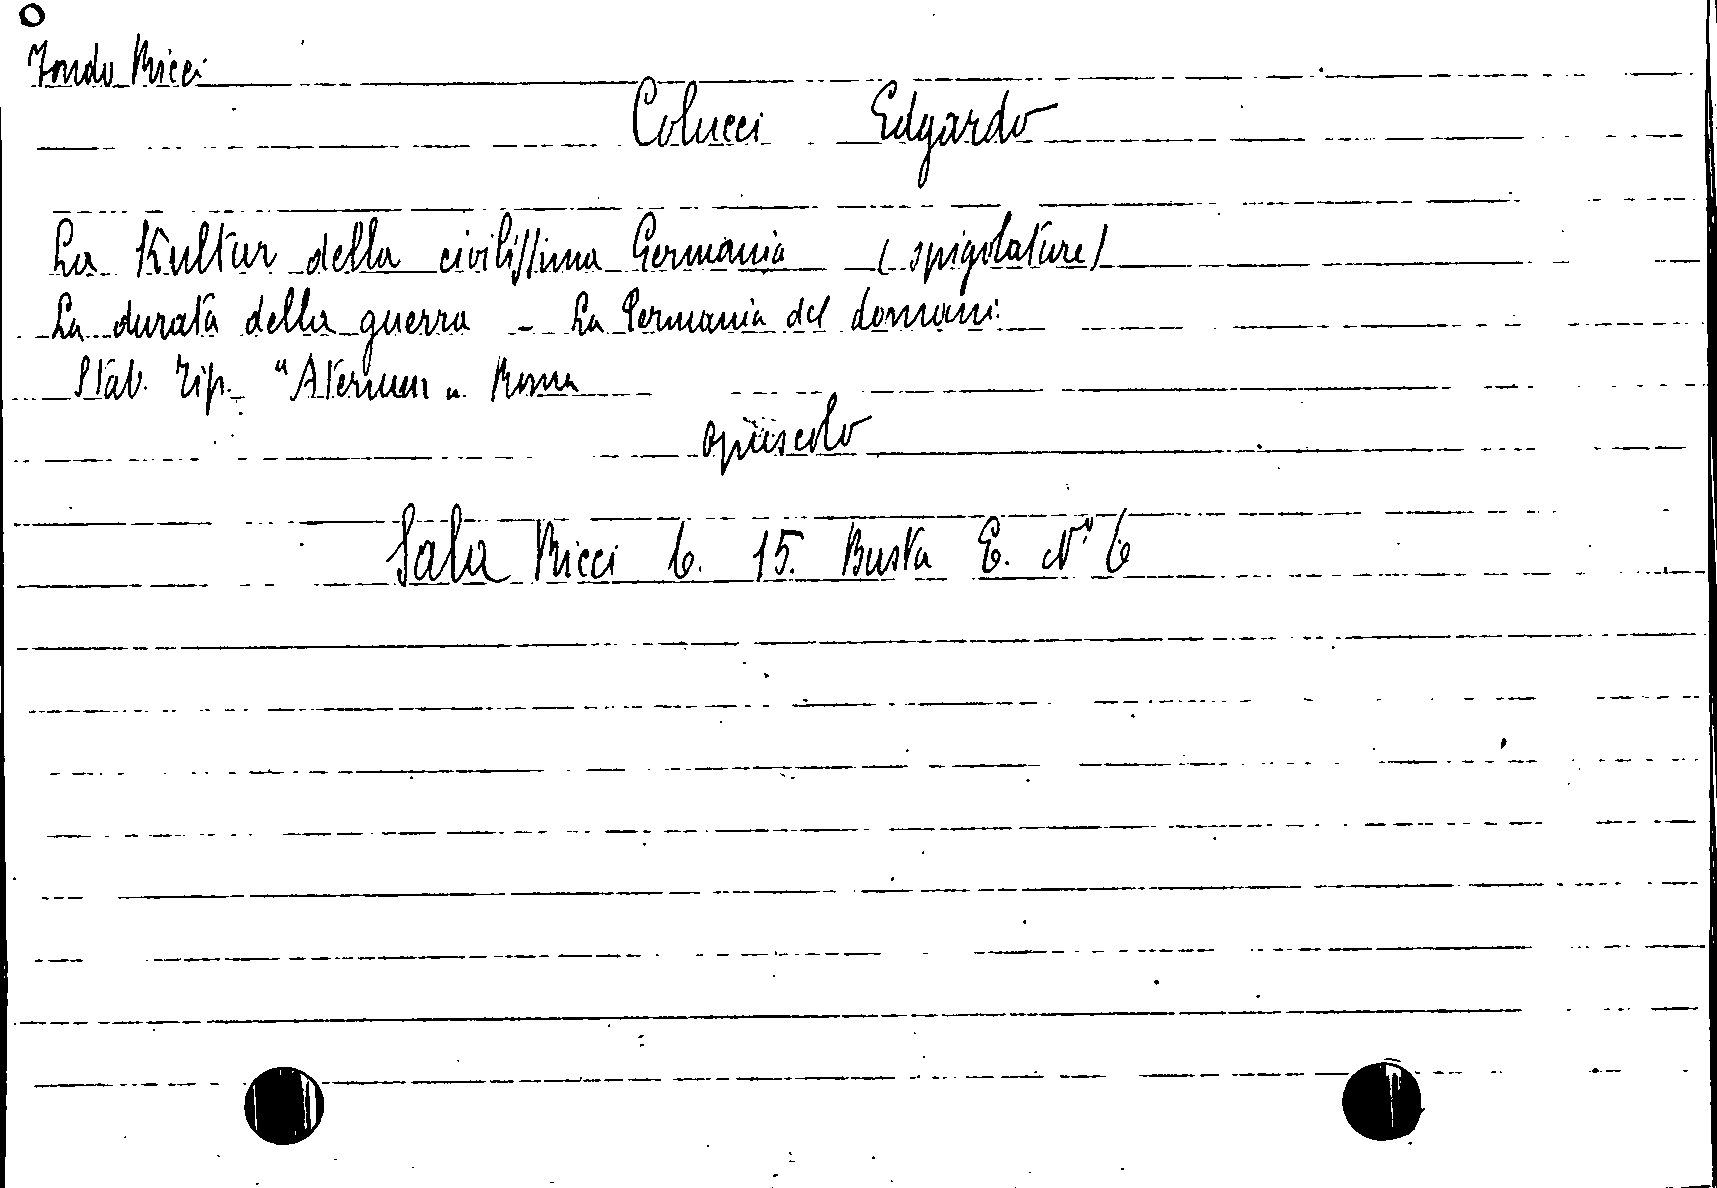 Fondo Ricci
Colucci Edgardo
La Kultur della civilissima Germania (spigolature)
La durata della guerra - La Germania del domani.
Stab. Tip. "Aternum" Roma
opuscolo
Sala Ricci 6. 15. Busta E. N° 6